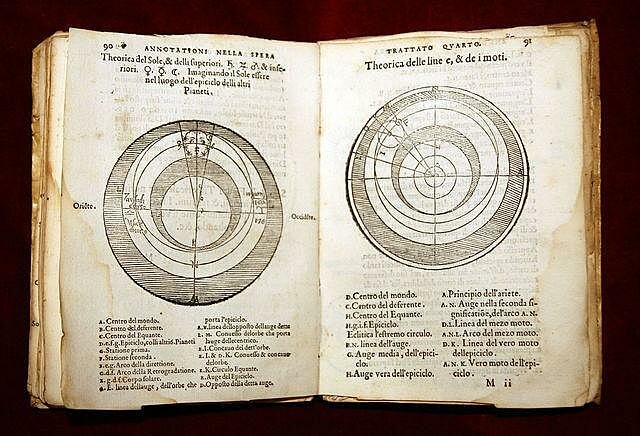 90
ANNOTATIONI NELLA SPERA
Theorica del Sole, & delli superiori. ♄ ♃ ♂ & infe-
riori. ♀ ☿ ☾. Imaginando il Sole essere
nel luogo dell'epiciclo delli altri
Pianeti.
Oriẽte.
Occidẽte.
A. Centro del mondo.
B. Centro del deferente.
C. Centro del Equante.
D.e.f.g. Epiciclo, colli altri Pianeti
E. Statione prima.
F. Statione seconda.
E.g. Arco della direttione.
C.d.f. Arco della Retrogradatione.
E.g.d.f. Corpo solare.
linea dellauge, dell'orbe che
porta l'epiciclo.
A.v. linea dell'opposto dell'auge dette
I. M. Conuesso delorbe che porta
lauge delleccentrico.
Concauo dell'orbe.
I. & D. K. Conuesso & concauo
delorbe.
K. Circulo Equante.
Auge del Epiciclo.
D. Opposto della detta auge.
TRATTATO QVARTO.
91
Theorica delle line e, & de i moti.
D. Centro del mondo.
C. Centro del deferente.
H. Centro del Equante.
H.g.i.f. Epiciclo.
Eclitica l'estremo circulo.
B.N. linea dell'auge.
G. Auge media, dell'epici-
clo.
H. Auge vera dell'epiciclo.
A. Principio dell'ariete.
A. N. Auge nella seconda si-
gnificatiõe, del'arco A.N.
D.L. Linea del mezo moto.
A.N.L. Arco del mezo moto.
D. K. Linea del vero moto
dellepiciclo.
A. N. K. Vero moto dell'epi-
ciclo.
M ii